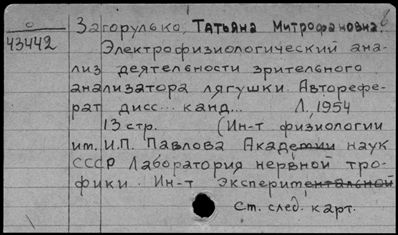 О
43442
Загорулько, Татьяна Митрофановна.
Электрофизиологический ана-
лиз деятельности зрительного
анализатора лягушки. Авторефе-
рат дисс... канд... Л., 1954
13 стр. (Ин-т физиологии
им. И.П. Павлова Академии наук
СССР Лаборатория нервной тро-
фики. Ин-т Экспериментальной
Ст. след. карт.